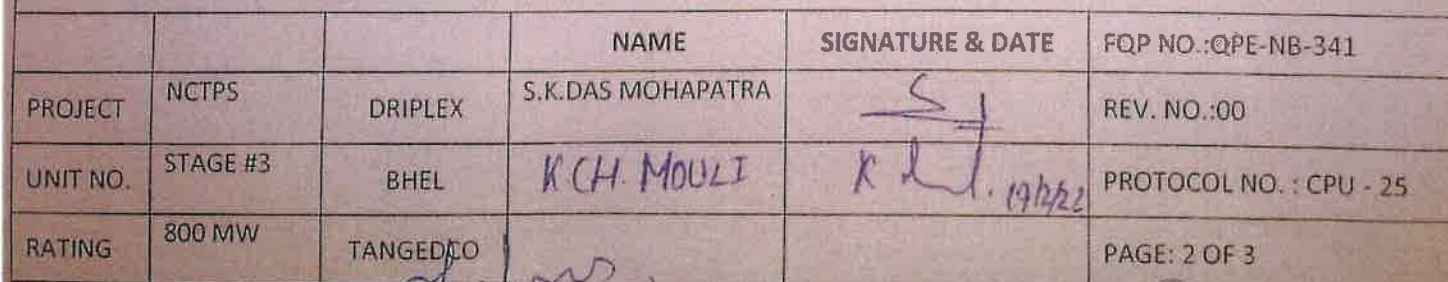 NAME SIGNATURE & DATE FQP NO.:QPE-NB-341
PROJECT NCTPS DRIPLEX S.K.DAS MOHAPATRA REV. NO.:00
UNIT NO. STAGE #3 BHEL K CH. MOULI 19/2/22 PROTOCOL NO. : CPU - 25
RATING 800 MW TANGEDCO PAGE: 2 OF 3